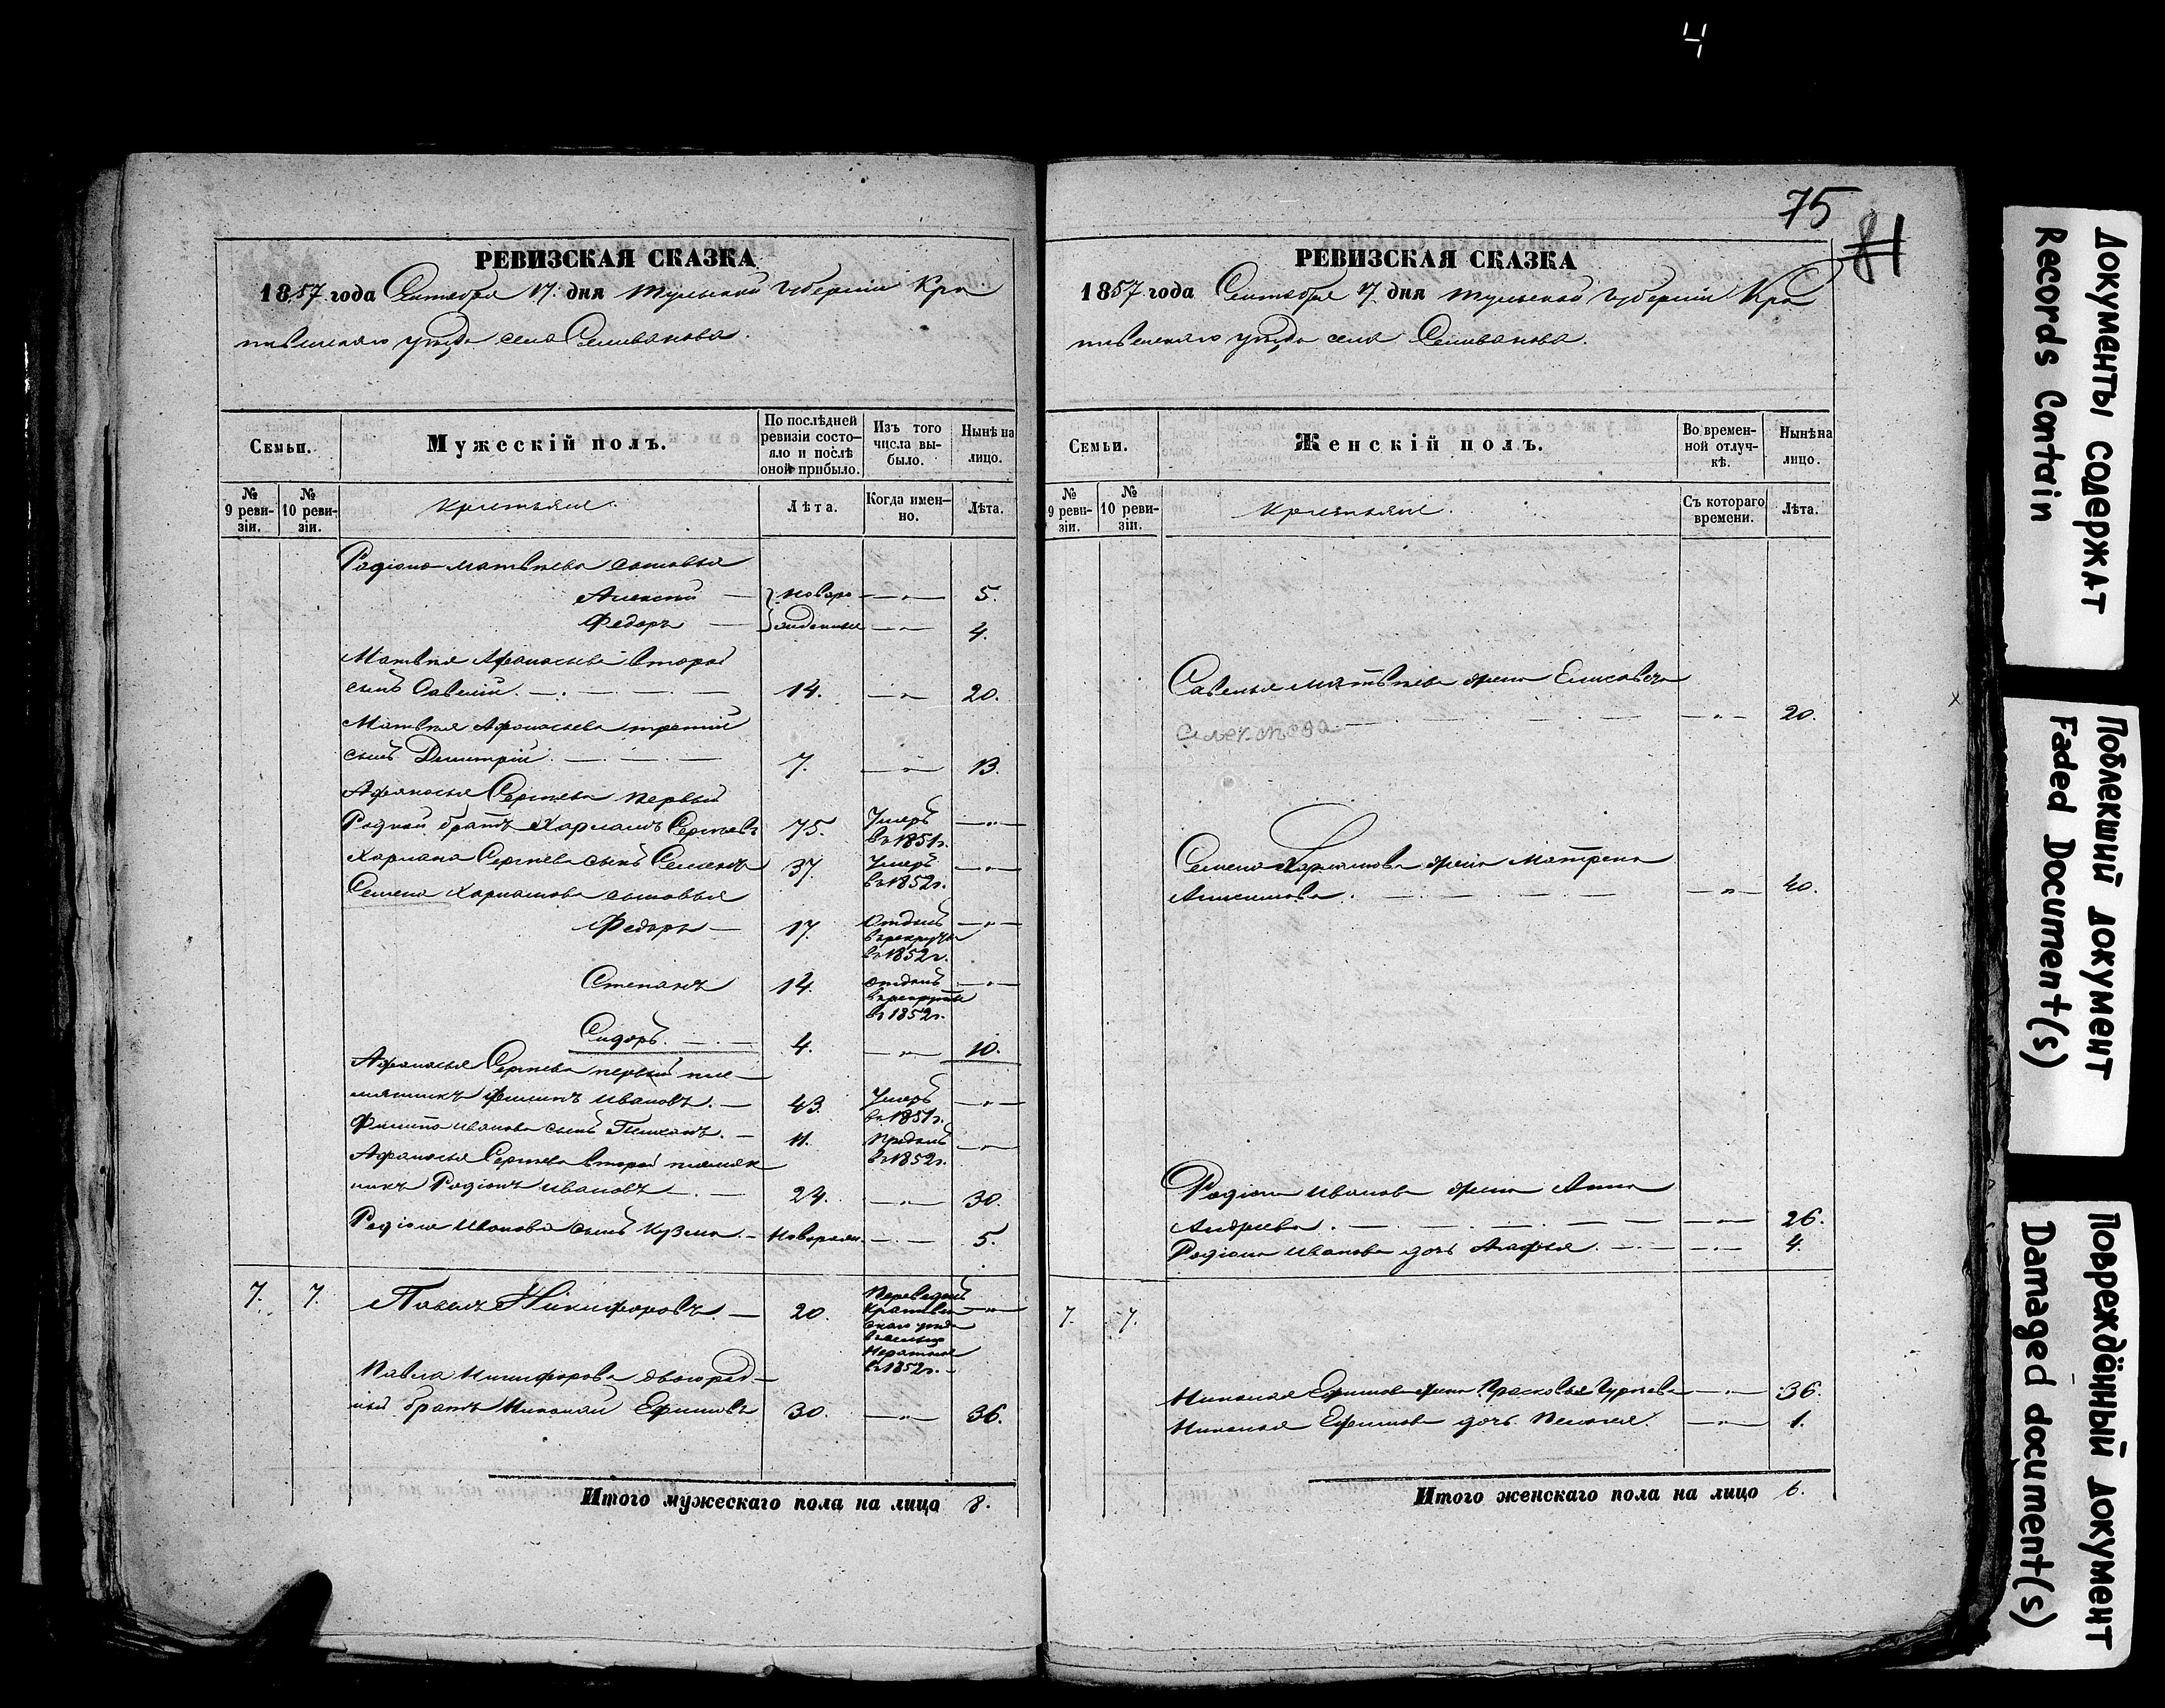 4
75
81
РЕВИЗСКАЯ СКАЗКА
1857 года Сентября 17 дня Тульской Губерніи Кра
пивенскаго уѣзда села Селиванова.
Семьи.
Мужескій полъ.
По послѣдней ревизіи состо-
яло и послѣ оной прибыло.
Изъ того числа вы-
было.
Нынѣ на лицо.
№ 9 реви-
зіи.
№ 10 реви-
зіи.
Крестьяне.
Лѣта.
Когда имен-
но.
Лѣта.
Родіона Матвѣева сыновья
Алексѣй — новоро — " — 5.
Федоръ — жденные — " — 4.
Матвѣя Афонасьева второй
сынъ Савелій. — 14. — " — 20.
Матвѣя Афонасьева третій
сынъ Дмитрій. — 7. — " — 13.
Афанасья Сергѣева первый
Родной братъ Харламъ Сергѣевъ 75. Умеръ въ 1851 г. — " —
Харлама Сергѣева сынъ Семенъ 37. Умеръ въ 1852 г. — " —
Семена Харламова сыновья
Федоръ — 17. Отданъ в рекруты въ 1852 г. — " —
Степанъ 14. отданъ в рекруты въ 1852 г. — " —
Сидоръ. — 4. — " — 10.
Афанасья Сергѣева первый пле-
мянникъ Филипъ Ивановъ. — 43. Умеръ въ 1851 г. — " —
Филипа Иванова сынъ — 11. въ 1852 г. — " —
Афанасья Сергѣева второй племян
никъ Родіонъ Ивановъ — 24. — " — 30.
Родіона Иванова сынъ Кузма. — новорожд. — 5.
7. 7. Павелъ Никифоровъ. — 20. Переведенъ
въ 1852 г. — " —
Павла Никифорова двоюрод-
ный братъ Николай Ефимовъ 30. — " — 36.
Итого мужескаго пола на лицо 8.
РЕВИЗСКАЯ СКАЗКА
1857 года Сентября 17 дня Тульской Губерніи Кра
пивенскаго уѣзда села Селиванова.
Семьи.
Женскій полъ.
Во времен-
ной отлуч-
кѣ.
Нынѣ на лицо.
№ 9 реви-
зіи.
№ 10 реви-
зіи.
Крестьяне.
Съ котораго времени.
Лѣта.
Савелья Матвѣева жена Елисавета
— " — 20.
Семена Харламова жена Матрена
Анисимова. — " — 40.
Родіона Иванова жена Анна
Андреева. — " — 26.
Родіона Иванова дочь Агафья. — " — 4.
7. 7.
Николая Ефимова жена Прасковья Гурьева — " — 36.
Николая Ефимова дочь Пелагея. — " — 1.
Итого женскаго пола на лицо 6.
Документы содержат
Records Contain
Поблекший документ
Faded Document(s)
Повреждённый документ
Damaged document(s)